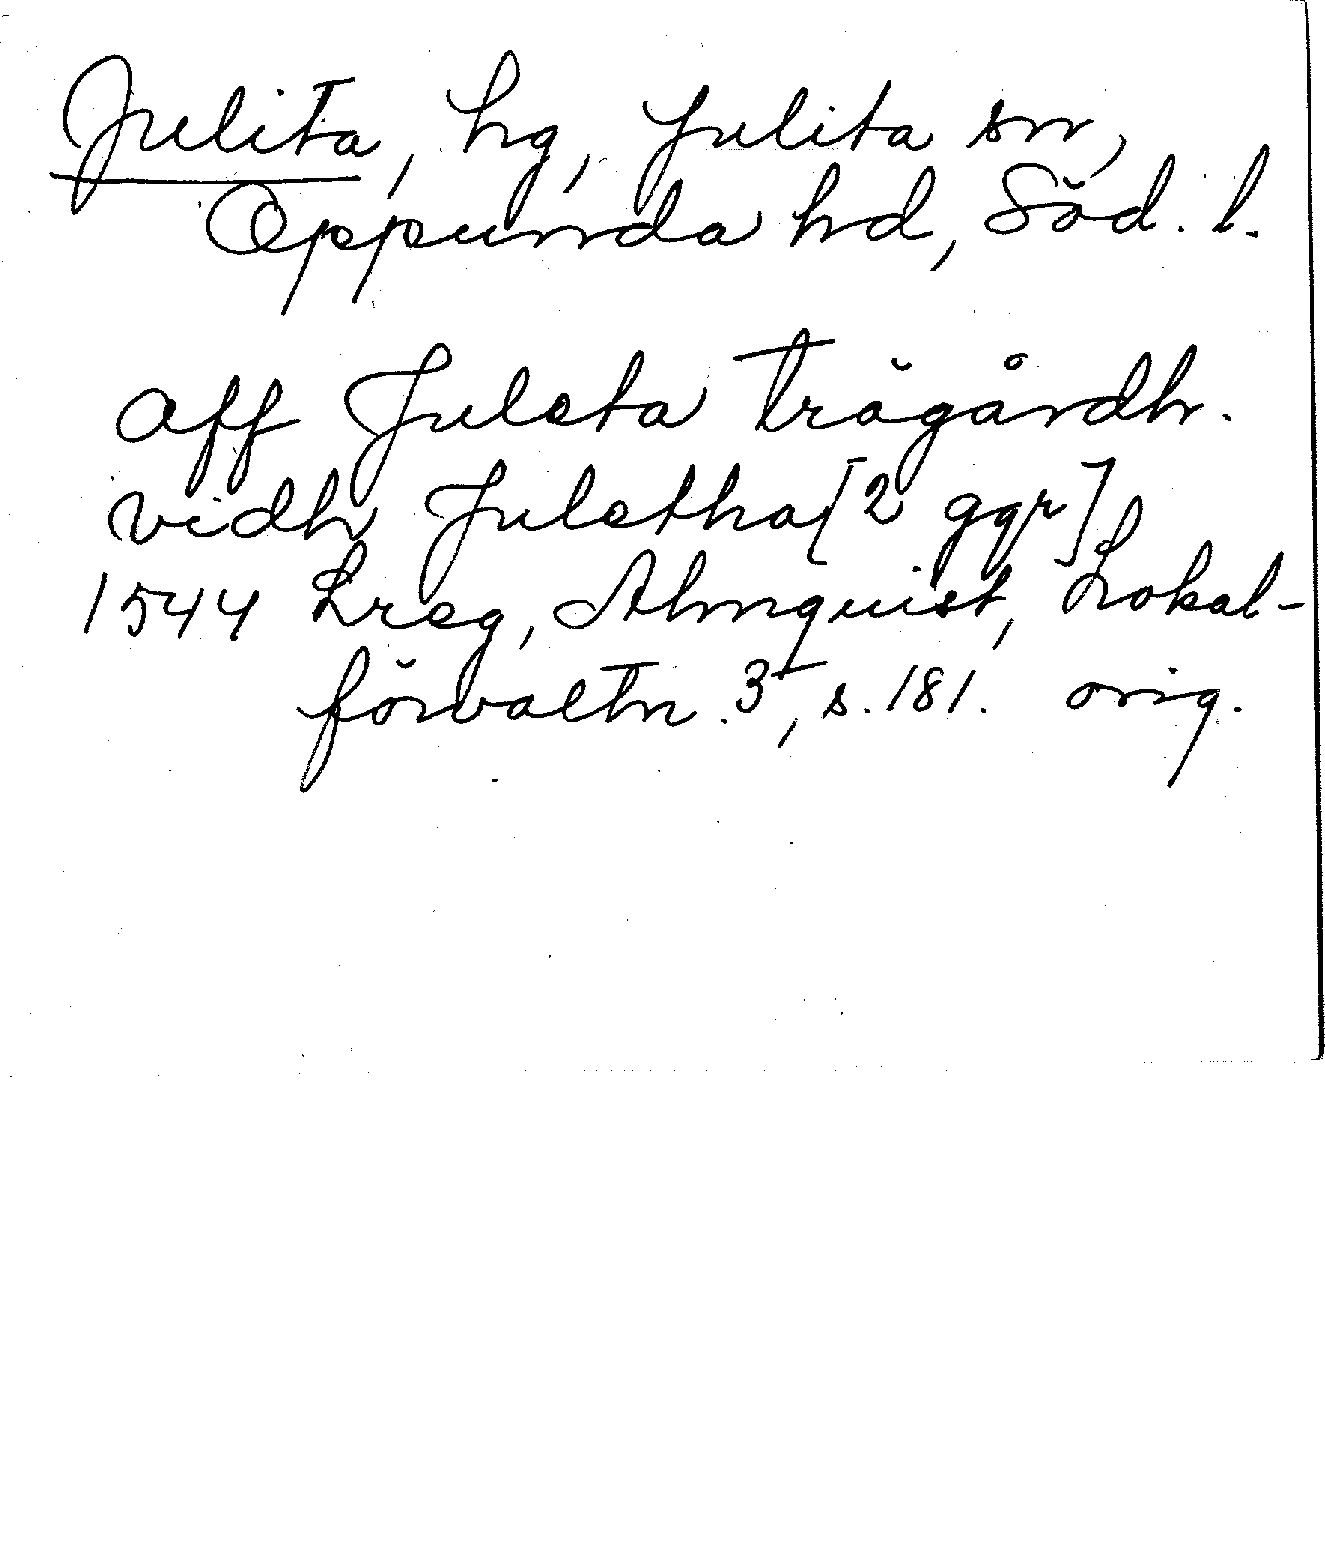 Julita, hg, Julita sn,
Oppunda hd, Söd. l.
aff Juleta Trägårdh.
vidh Juletha [2 ggr]
1544 Lreg, Almquist, Lokal-
förvaltn. 3, s. 181. orig.